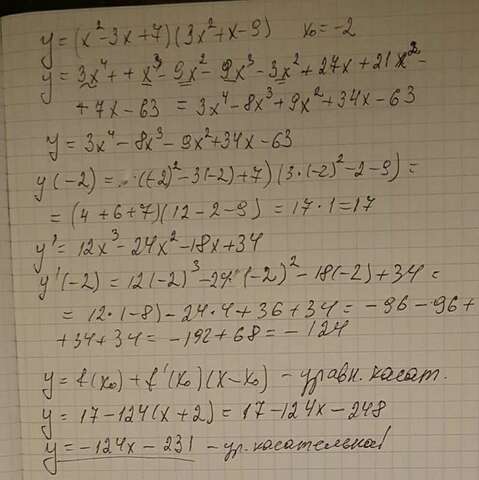 y=(x²-3x+7)(3x²+x-9) x₀=-2
y=3x⁴++x³-9x²-9x³-3x²+27x+21x²-
+7x-63 =3x⁴-8x³+9x²+34x-63
y=3x⁴-8x³-9x²+34x-63
y(-2)=((-2)²-3(-2)+7)(3·(-2)²-2-9)=
=(4+6+7)(12-2-9)=17·1=17
y'=12x³-24x²-18x+34
y'(-2)=12(-2)³-24(-2)²-18(-2)+34=
=12·(-8)-24·4+36+34=-96-96+
+34+34=-192+68=-124
y=f(x₀)+f'(x₀)(x-x₀)-уравн. касат.
y=17-124(x+2)=17-124x-248
y=-124x-231 -ур. касательной